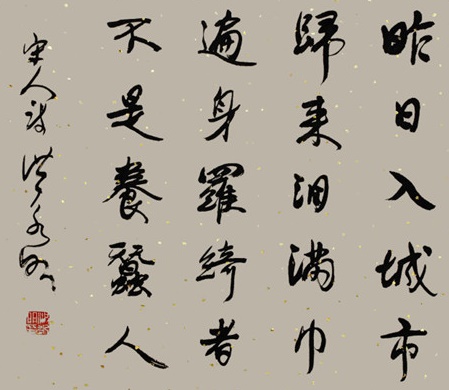 昨日入城市
歸来泪满巾
遍身羅綺者
不是養蠶人
宋人詩